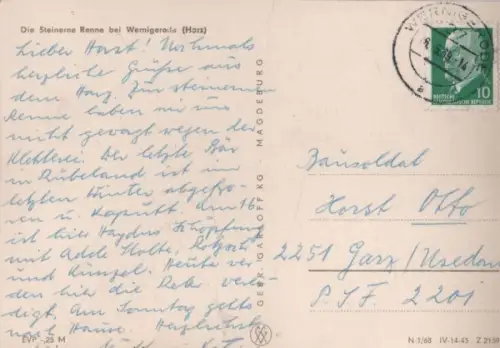 Die Steinerne Renne bei Wernigerode (Harz)
Lieber Horst! Nochmals
herzliche Grüße aus
dem Harz. Zur steinernen
Renne haben wir uns
nicht gewagt wegen der
Kletterei. Der letzte Bär
in Rübeland ist im
letzten Winter abgefro-
ren u. kaputt. Am 16.
ist hier Haydns Schöpfung
mit Adele Stolte, Rotzsch
und Kunzel. Heute wer-
den hier die Rekr. verei-
digt. Am Sonntag gehts
nach Hause. Herzlichst
EVP -,25 M
GEBR. GARLOFF KG · MAGDEBURG
WERNIGERODE
DEUTSCHE
DEMOKRATISCHE REPUBLIK
10
Bausoldat
Horst Otto
2251 Garz/Usedom
P.S.F. 2201
N 1/68 IV-14-45